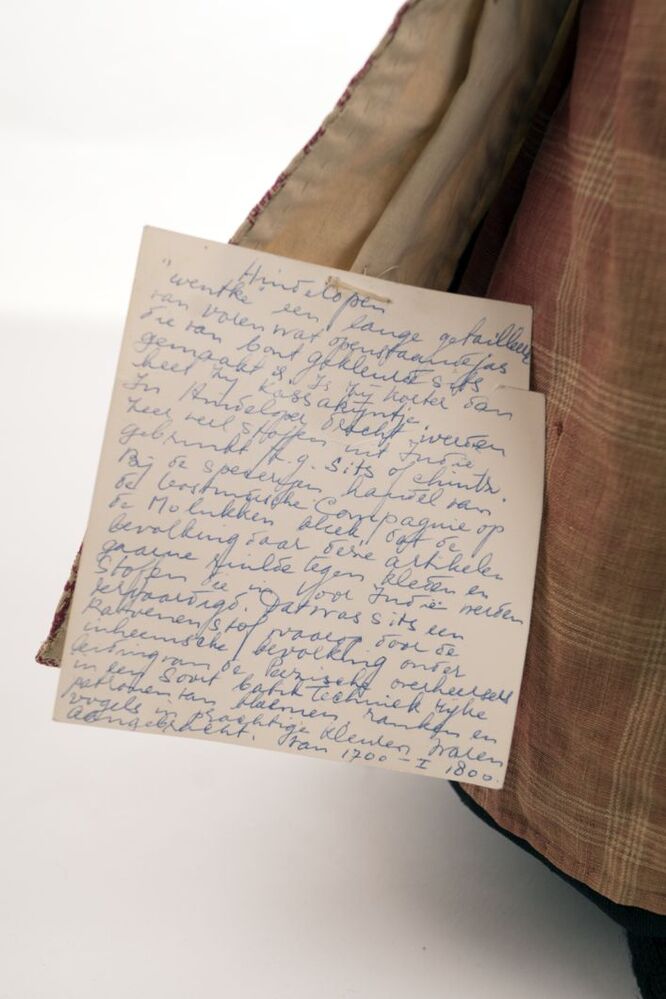 Hindelopen
"wentke" een lange getailleerde
van voren wat openstaande jas
die van bont gekleurde sits
gemaakt is. Is hij korter dan
heet hij Kassakijntje.
In Hindeloper dracht werden
heel veel stoffen uit Indië
gebruikt n.g. sits of chintz.
Bij de specerijen handel van
de Oostindische Compagnie op
de Molukken bleek, dat de
bevolking daar deze artikelen
gaarne ruilde tegen kleden en
stoffen die in voor Indië werden
vervaardigd. Dat was sits een
katoenen stof waarop door de
inheemsche bevolking onder
leiding van de Perzische overheersers
in een soort batik techniek rijke
patronen van bloemen, ranken en
vogels in prachtige kleuren waren
aangebracht. van 1700 – ± 1800.